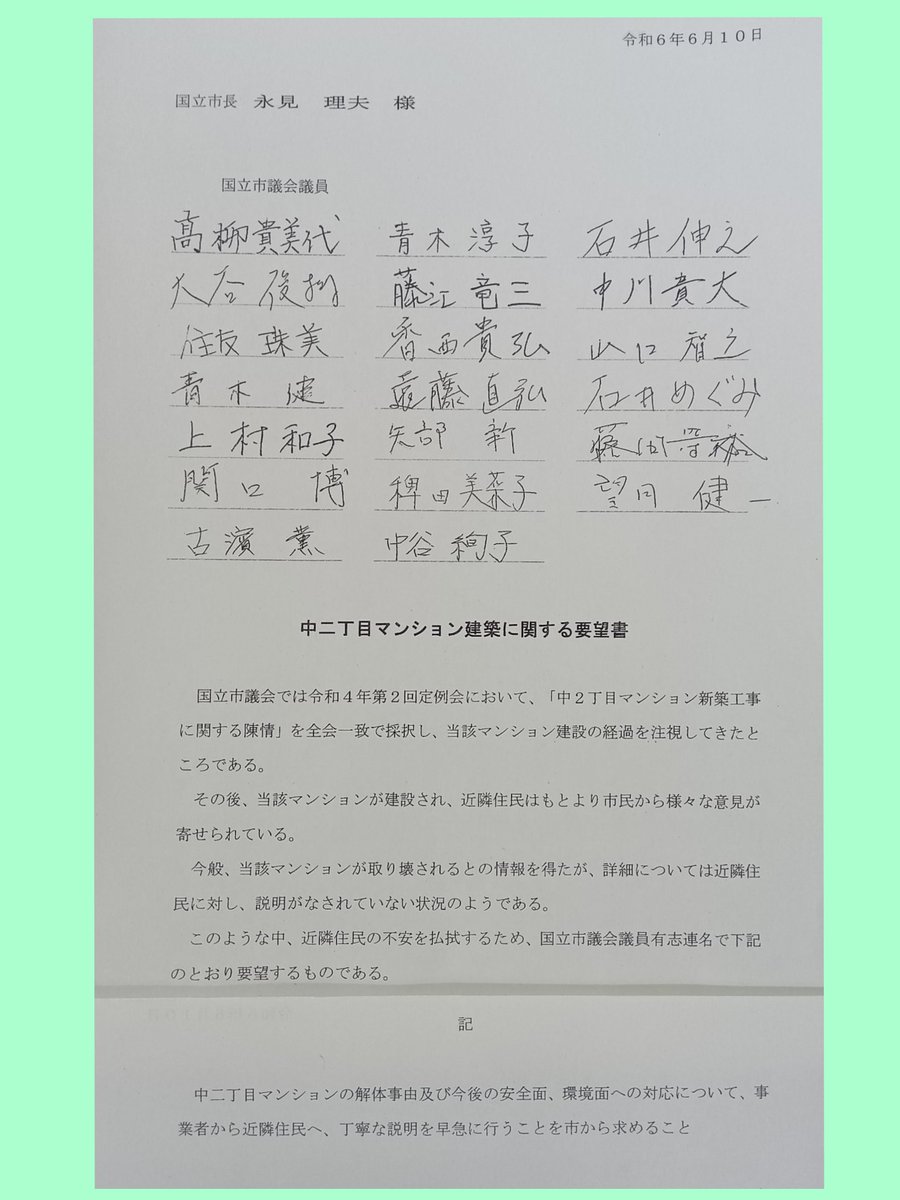 令和6年6月10日
国立市長 永見 理夫 様
国立市議会議員
髙柳貴美代 青木淳子 石井伸之
大谷俊樹 藤江竜三 中川貴大
住友珠美 香西貴弘 山口智之
青木健 遠藤直弘 石井めぐみ
上村和子 矢部新 藤田
関口博 稗田美菜子 望月健一
古濱薫 中谷絢子
中二丁目マンション建築に関する要望書
国立市議会では令和4年第2回定例会において、「中2丁目マンション新築工事
に関する陳情」を全会一致で採択し、当該マンション建設の経過を注視してきたと
ころである。
その後、当該マンションが建設され、近隣住民はもとより市民から様々な意見が
寄せられている。
今般、当該マンションが取り壊されるとの情報を得たが、詳細については近隣住
民に対し、説明がなされていない状況のようである。
このような中、近隣住民の不安を払拭するため、国立市議会議員有志連名で下記
のとおり要望するものである。
記
中二丁目マンションの解体事由及び今後の安全面、環境面への対応について、事
業者から近隣住民へ、丁寧な説明を早急に行うことを市から求めること